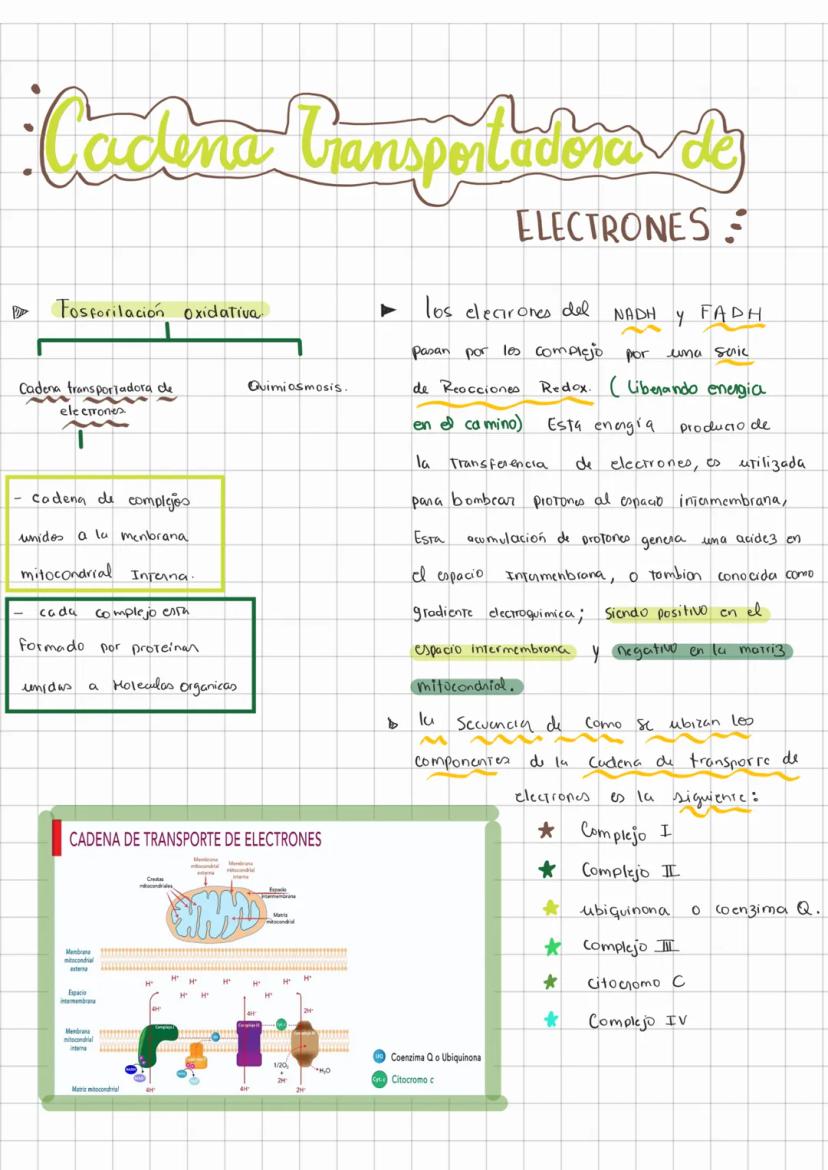 Cadena Transportadora de
ELECTRONES
Fosforilación oxidativa.
Cadena transportadora de
electrones
Quimiosmosis.
- cadena de complejos
unidos a la menbrana
mitocondrial Interna.
- cada complejo esta
formado por proteínas
unidas a Moleculas organicas
los electrones del NADH y FADH
pasan por los complejo por una serie
de Reacciones Redox. (Liberando energia
en el camino) Esta energía producto de
la Transferencia de electrones, es utilizada
para bombear protones al espacio intermembrana,
Esta acumulación de protones genera una acidez en
el espacio Intermembrana, o tambien conocida como
gradiente electroquimica; siendo positivo en el
espacio intermembrana y negativo en la matriz
mitocondrial.
la secuencia de como se ubican los
componentes de la cadena de transporte de
electrones es la siguiente:
Complejo I
Complejo II
ubiquinona o coenzima Q.
Complejo III
citocromo C
Complejo IV
CADENA DE TRANSPORTE DE ELECTRONES
Membrana
mitocondrial
externa
Membrana
mitocondrial
interna
Crestas
mitocondriales
Espacio
intermembrana
Matriz
mitocondrial
Membrana
mitocondrial
externa
H⁺ H⁺ H⁺ H⁺ H⁺ H⁺
H⁺ H⁺ H⁺
Espacio
intermembrana
4H⁺ 4H⁺ 2H⁺
Membrana
mitocondrial
interna
Complejo I
Complejo III
Cyt. c
UQ
1/2O₂
+
2H⁺
H₂O
Matriz mitocondrial
4H⁺ 4H⁺ 2H⁺
UQ Coenzima Q o Ubiquinona
Cyt. c Citocromo c